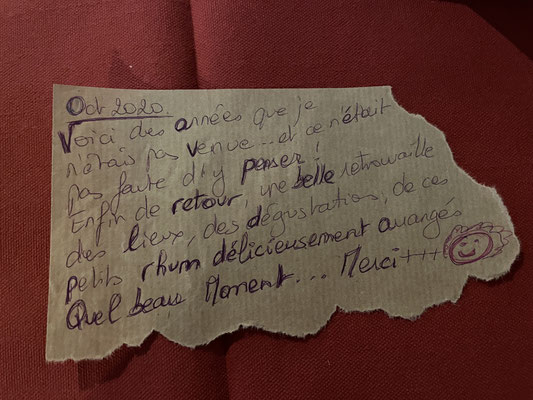 Oct 2020
Voici des années que je
n'étais pas venue... et ce n'était
pas faute d'y penser !
Enfin de retour, une belle retrouvaille
des lieux, des dégustations, de ces
petits rhum délicieusement arrangés
Quel beau Moment... Merci +++